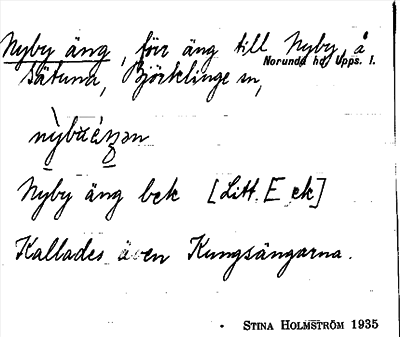 Nyby äng, förr äng till Nyby å
Norunda hd, Upps. l.
Sätuna, Björklinge sn,
Nyby äng bek [Litt. E ek]
Kallades även Kungsängarna.
STINA HOLMSTRÖM 1935